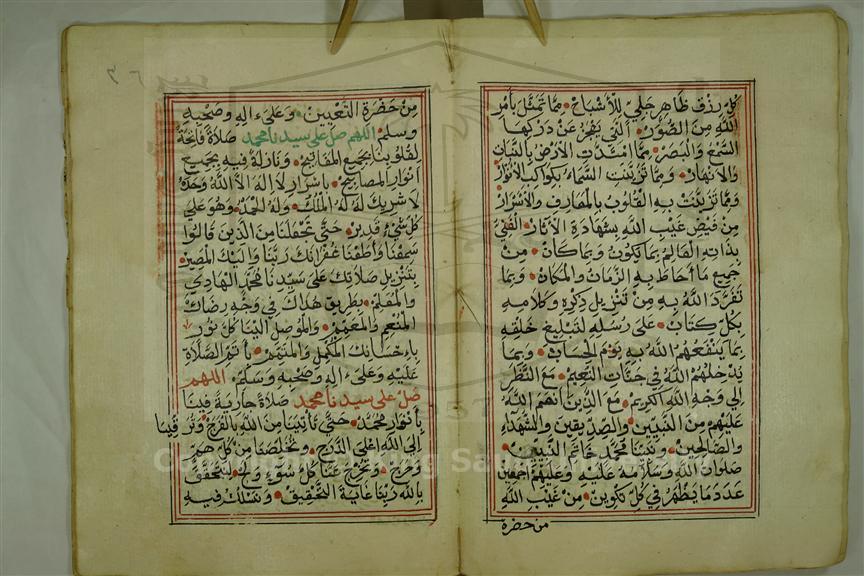 كل رزق ظاهر جلي للأشباح مما تمثل بأمر
الله من الصور التي يفر عن دركها
السمع والبصر مما امتدت الأرض بالنبات
والأنهار ومما تزينت السماء بكواكب الأنوار
ومما تزينت به القلوب بالمعارف والأسرار
من فيض غيب الله بشهادة الآثار الغني
بذاته العالم بما يكون وبما كان من
جميع ما أحاط به الزمان والمكان وبما
تفرد الله به من تنزيل ذكره وكلامه
بكل كتاب على رسله لتبليغ خلقه
بما ينفعهم الله به يوم الحساب وبما
يدخلهم الله في جنات النعيم مع النظر
إلى وجه الله الكريم مع الذين أنعم الله
عليهم من النبيين والصديقين والشهداء
والصالحين ونبينا محمد خاتم النبيين
صلوات الله وسلامه عليه وعليهم أجمعين
عدد ما يظهر في كل تكوين من غيب الله
من حضرة
من حضرة التعيين وعلى اله وصحبه
وسلم اللهم صل على سيدنا محمد صلاة فاتحة
لقلوبنا بجميع المفاتيح ونازلة فيه بجميع
أنوار المصابيح بأسرار لا إله الا الله وحده
لا شريك له له الملك وله الحمد وهو على
كل شيء قدير حتى تجعلنا من الذين قالوا
سمعنا وأطعنا غفرانك ربنا وإليك المصير
بتنزيل صلاتك على سيدنا محمد الهادي
والمعلم بطريق هداك في وجه رضاك
المنعم والمعمم والموصل الينا كل نور
بإحسانك المكمل والمتمم بأتم الصلاة
عليه وعلى اله وصحبه وسلم اللهم
صل على سيدنا محمد صلاة جارية فينا
بأنوار محمد حتى تأتينا من الله بالفرج وترقينا
إلى الله أعلى الدرج وتخلصنا من كل هم
وحرج وتخرج عنا كل سوء ولج لنتحقق
بالله ربنا غاية التحقيق ونسلك فيه
Copyright © King Saud University